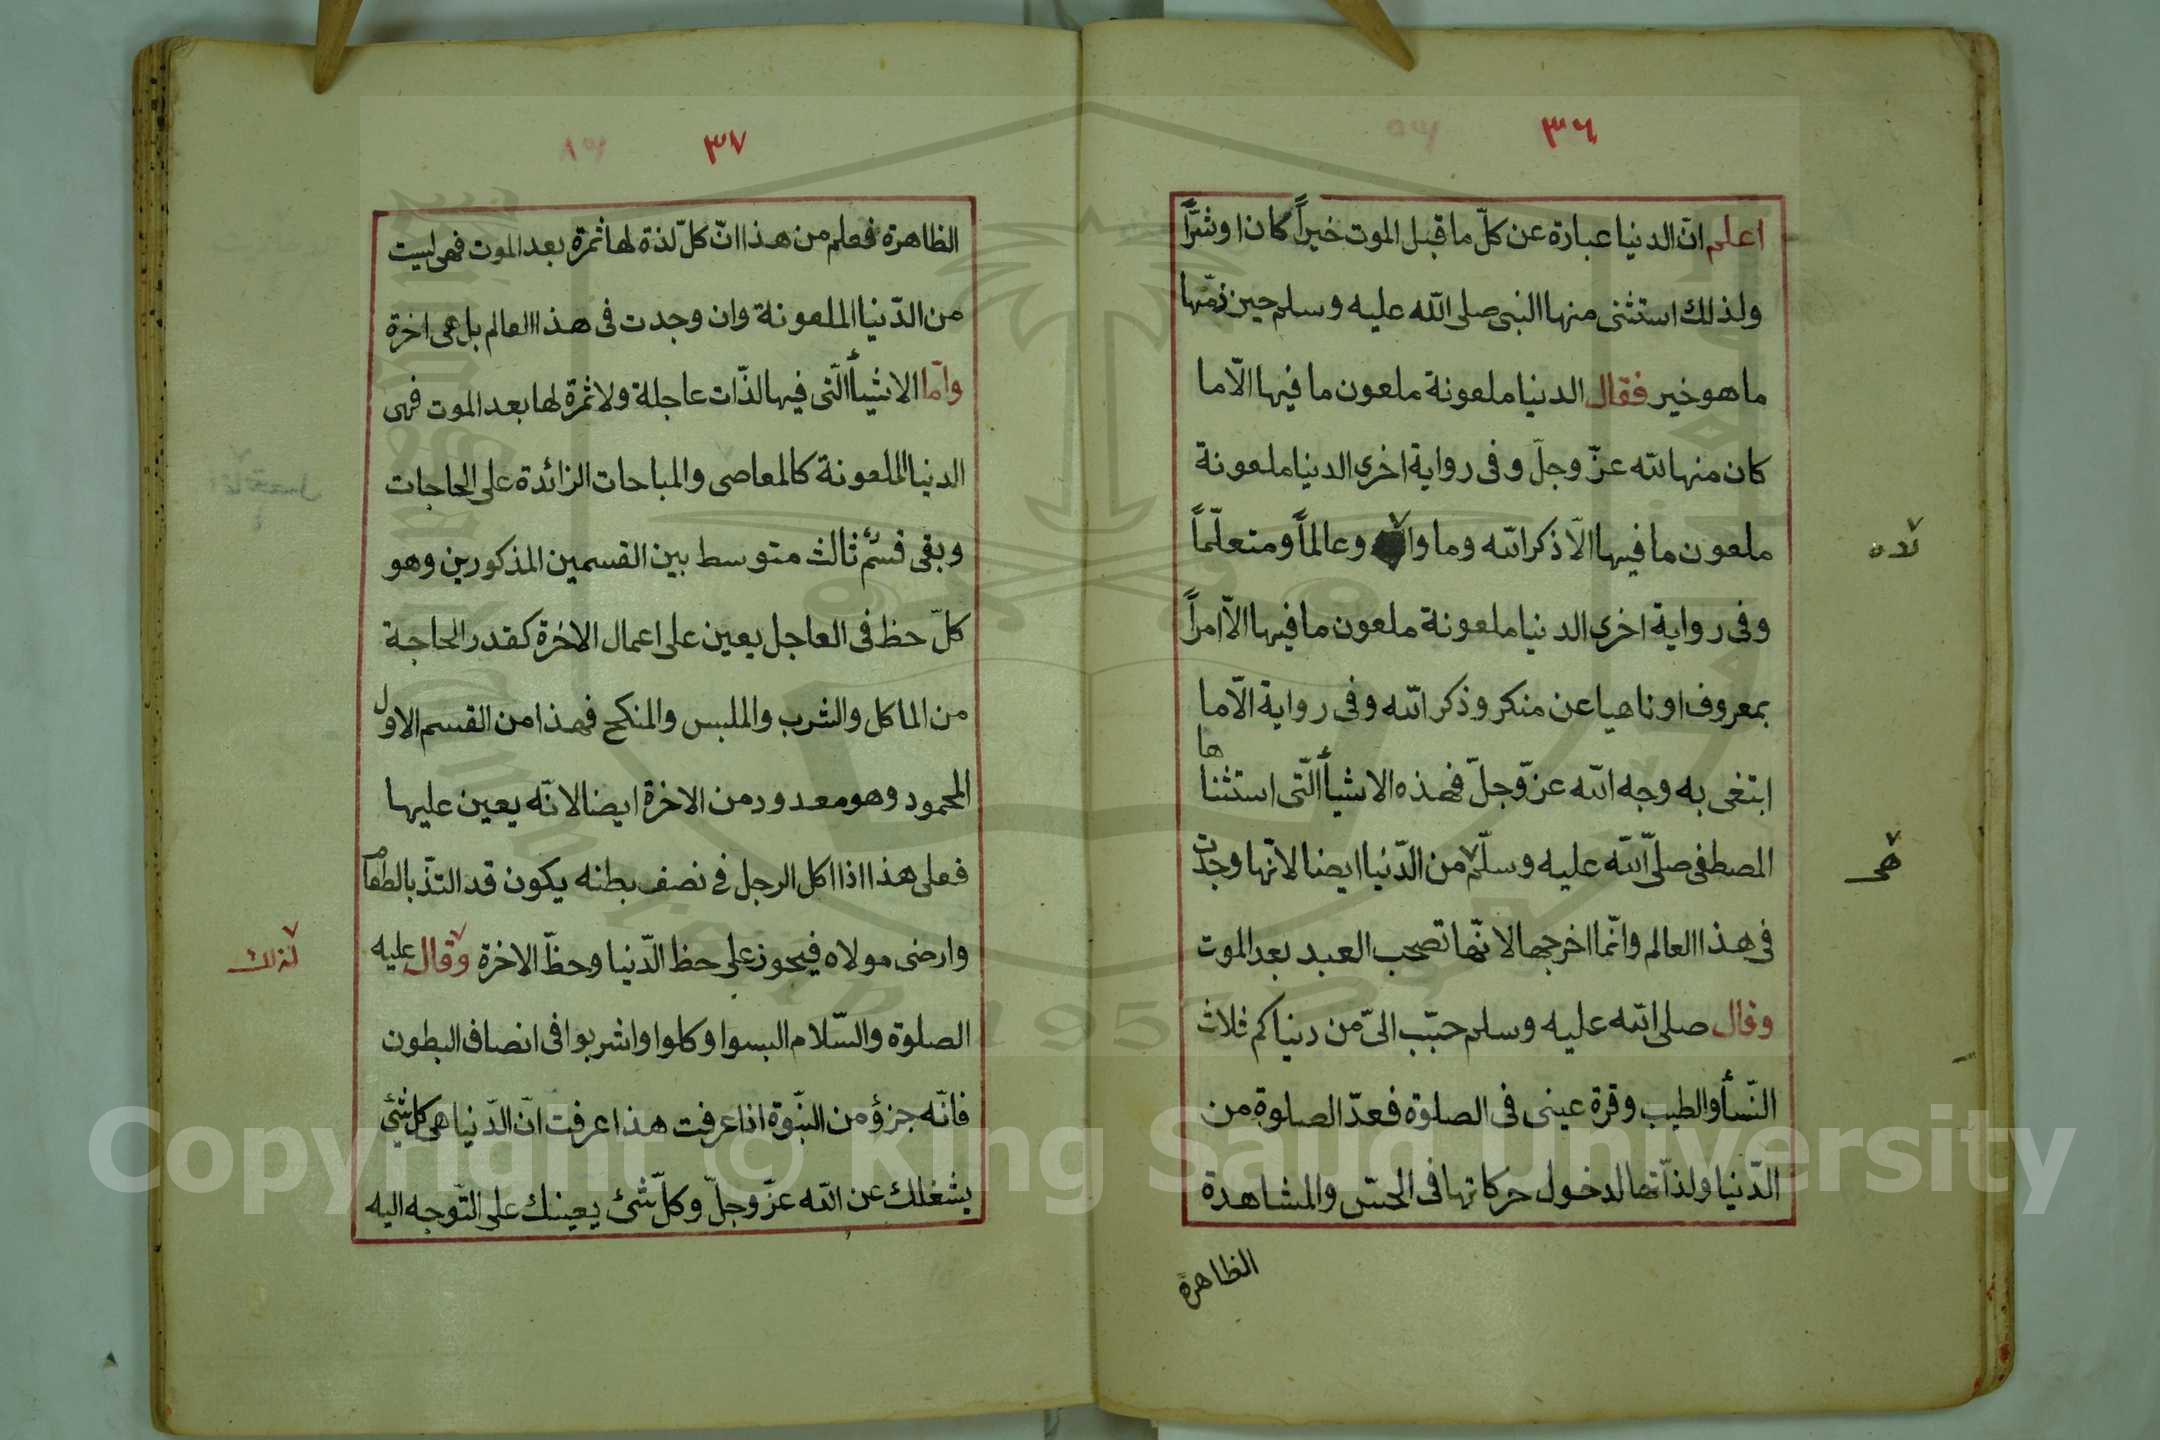 ٣٦
اعلم انّ الدنيا عبارة عن كلّ ما قبل الموت خيراً كان او شرّاً
ولذلك استثنى منها النبى صلى اللّه عليه وسلم حين ذمّها
ما هو خير فقال الدنيا ملعونة ملعون ما فيها الّا ما
كان منها للّه عزّ وجلّ وفى رواية اخرى الدنيا ملعونة
ملعون ما فيها الّا ذكر اللّه وما والاه وعالماً ومتعلّماً
وفى رواية اخرى الدنيا ملعونة ملعون ما فيها الّا امراً
بمعروف او ناهيا عن منكر وذكر اللّه وفى رواية الّا ما
ابتغى به وجه اللّه عزّ وجلّ فهذه الاشيأ الّتى استثناها
المصطفى صلّى اللّه عليه وسلّم هى من الدّنيا ايضا لانّها وجدت
فى هذا العالم وانّما اخرجها لانّها تصحب العبد بعد الموت
وقال صلى اللّه عليه وسلم حبّب الىّ من دنياكم ثلاث
النّسأ والطيب وقرة عينى فى الصلوة فعدّ الصلوة من
الدّنيا ولذّاتها لدخول حركاتها فى الحسّ والمشاهدة
الظاهرة
٣٧
الظاهرة فعلم من هذا انّ كلّ لذة لها ثمرة بعد الموت فهى ليست
من الدّنيا الملعونة وان وجدت فى هذا العالم بل هى اخرة
وامّا الاشيأ الّتى فيها لذّات عاجلة ولا ثمرة لها بعد الموت فهى
الدنيا الملعونة كالمعاصى والمباحات الزائدة على الحاجات
وبقى قسم ثالث متوسط بين القسمين المذكورين وهو
كلّ حظ فى العاجل يعين على اعمال الاخرة كقدر الحاجة
من الماكل والشرب والملبس والمنكح فهذا من القسم الاول
المحمود وهو معدود من الاخرة ايضا لانّه يعين عليها
فعلى هذا اذا اكل الرجل فى نصف بطنه يكون قد التذّ بالطعام
وارضى مولاه فيحوز على حظ الدّنيا وحظّ الاخرة وقال عليه
لذلك
الصلوة والسّلام البسوا وكلوا واشربوا فى انصاف البطون
فانّه جزؤ من النبّوة اذا عرفت هذا عرفت انّ الدّنيا هى كل شئ
يشغلك عن اللّه عزّ وجلّ وكلّ شئ يعينك على التّوجه اليه
Copyright © King Saud University